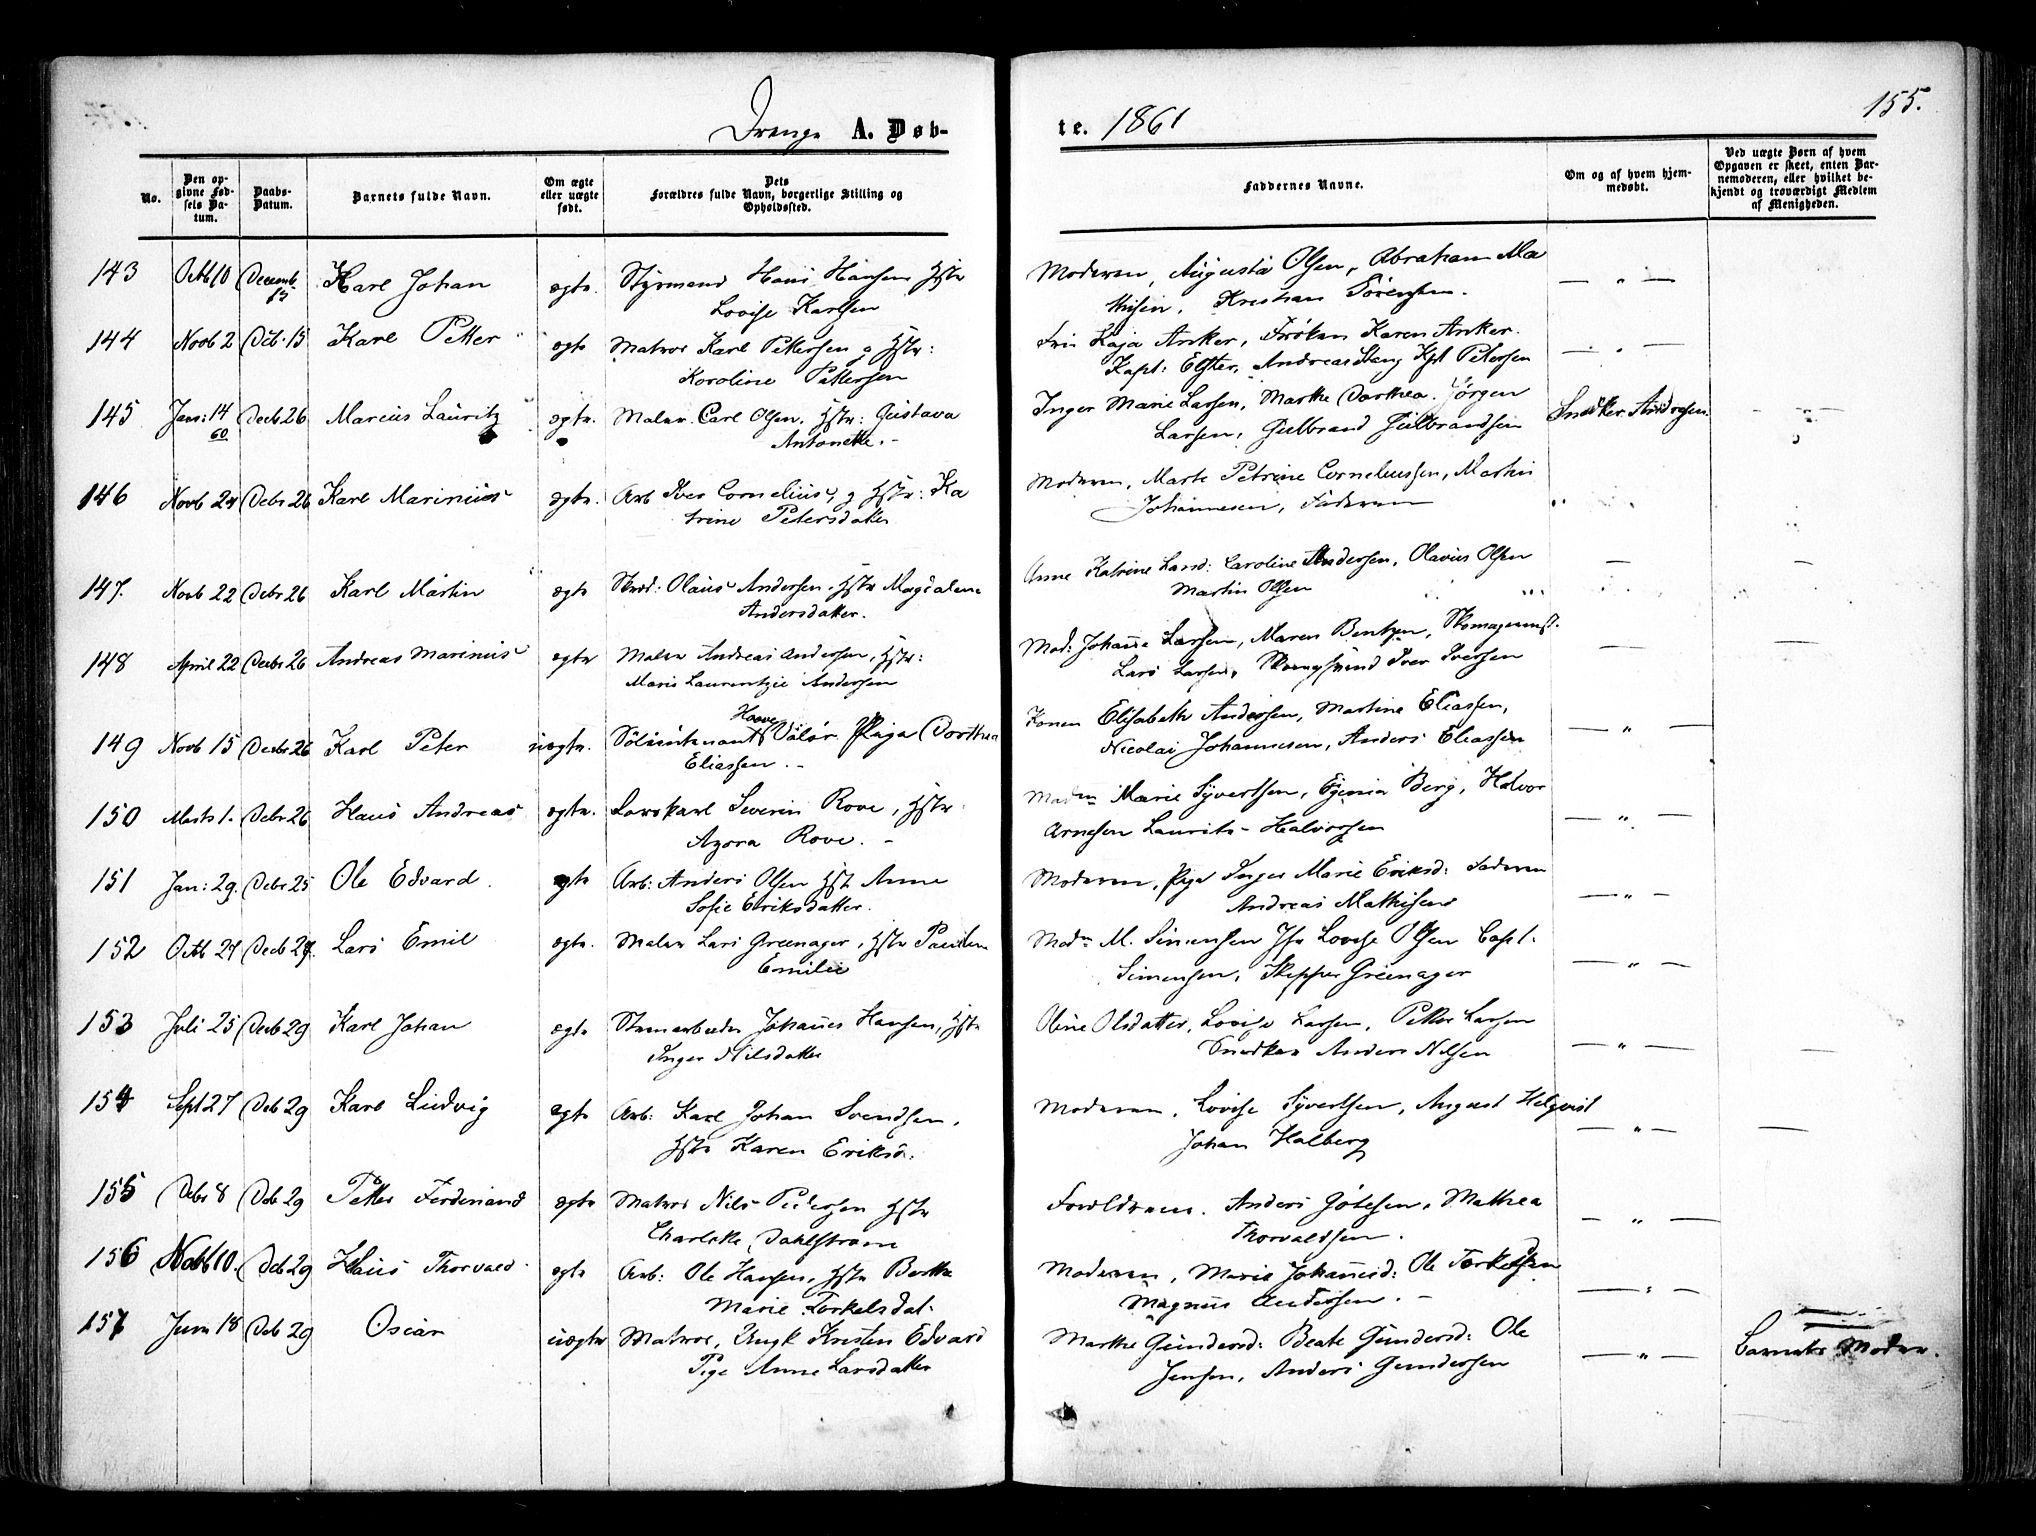 Drenge A. Døb-
te. 1861
155.
No.
Den op-
givne Fød-
sels Da-
tum.
Daabs-
Datum.
Barnets fulde Navn.
Om ægte
eller uægte
født.
Dets
Forældres fulde Navn, borgerlige Stilling og
Opholdssted.
Faddernes Navne.
Om og af hvem hjem-
medøbt.
Ved uægte Børn af hvem
Opgaven er skeet, enten Bar-
nemoderen, eller hvilket be-
kjendt og troværdigt Medlem
af Menigheden.
143 Octb 10 Decemb. 15 Karl Johan ægte. Styrmand Hans Hansen Hstr Moderen, Augusta Olsen, Abraham Ma — " —
Lovise Karlsen thisen, Kristian Sørensen.
144 Novb 2 Dcb. 15 Karl Petter ægte Matros Karl Pettersen og Hstr: Kaja Anker, Frøken Karen Anker. — " —
Karoline Pettersen Kapt: Elster, Andreas Stang Kpt Petersen
145 Jan: 14 60 Decb 26 Marcus Lauritz ægte. Maler Carl Olsen, Hstr: Gustava Inger Marie Larsen, Marthe Dorthea. Jörgen Snedker Andresen. - " -
Antonette. - Larsen, Gulbrand Gulbrandsen
146 Novb 24 Debr 26 Karl Marinius ægte. Arb Iver Cornelius, og Hstr: Ka Moderen, Marte Petrine Corneliussen, Martin
trine Petersdatter Johannesen, Faderen
147. Novb 22 Debr 26 Karl Martin ægte Skræd: Olaus Andersen, Hstr Magdalene Anne Katrine Land: Caroline Andersen, Olavus Olsen —
Andersdatter. Martin Olsen
148 April 22 Debr 26 Andreas Marinius ægte Maler Andreas Andersen, Hstr: Mad: Johanne Larsen, Maren Bentzen, Skomagersv. —
Marie Laurentzie Andersen Lars Larsen, Iver Iversen
149 Novb 15 Debr 26 Karl Peter uægte. Hoove Pige Dorthea Konen Elisabeth Andersen, Martine Eliassen, — " —
Eliassen. - Nicolai Johannesen, Anders Eliassen
150 Marts 1. Debr 26 Hans Andreas ægte. Severin Rove, Hstr Madm Marie Syvertsen, Berg, Halvor — " —
Agora Rove. - Arnesen Laurits Halvorsen
151 Jan: 29. Debr 25 Ole Edvard. ægte Arb: Anders Olsen Hst Anne Moderen, Pige Inger Marie Eriksd: Faderen — " —
Sofie Eriksdatter. Andreas Mathisen
152 Octb 24 Decb 29. Lars Emil ægte. Maler Lars Greenager, Hstr Pauline Madm M. Simensen Jfr Lovise Olsen Capt. — " —
Emilie Simensen, Skipper Greenager
153 Juli 25 Decb 29 Karl Johan ægte Johannes Hansen, Hstr Oline Olsdatter, Lovise Larsen, Petter Larsen — " —
Inger Nilsdatter Snedker Anders Nilsen
154 Sept 27 Dcb 29 Karl Ludvig ægte Arb: Karl Johan Svendsen, Moderen, Lovise Syvertsen, August Helqvist — " —
Hstr Karen Eriksd: Johan Halberg
155 Debr 8 Dcb 29 Petter Ferdinand ægte Matros Nils Pedersen Hstr Forældrene. Anders Gøtesen, Mathea — " —
Charlotte Dahlstrøm Thorvaldsen.
156 Novb 10. Dcb 29 Hans Thorvald ægte Arb: Ole Hansen, Hstr Berthe Moderen, Marie Johannesd: Ole Torkelsen — " —
Marie Torkelsdat. Magnus Andersen. -
157 Juni 18 Dcb 29 Oscar uægte Matros, Ungk Kristen Edvard Marthe Gundersd: Beate Gundersd: Ole — " — Barnets Moder.
Pige Anne Larsdatter Jensen, Anders Gundersen